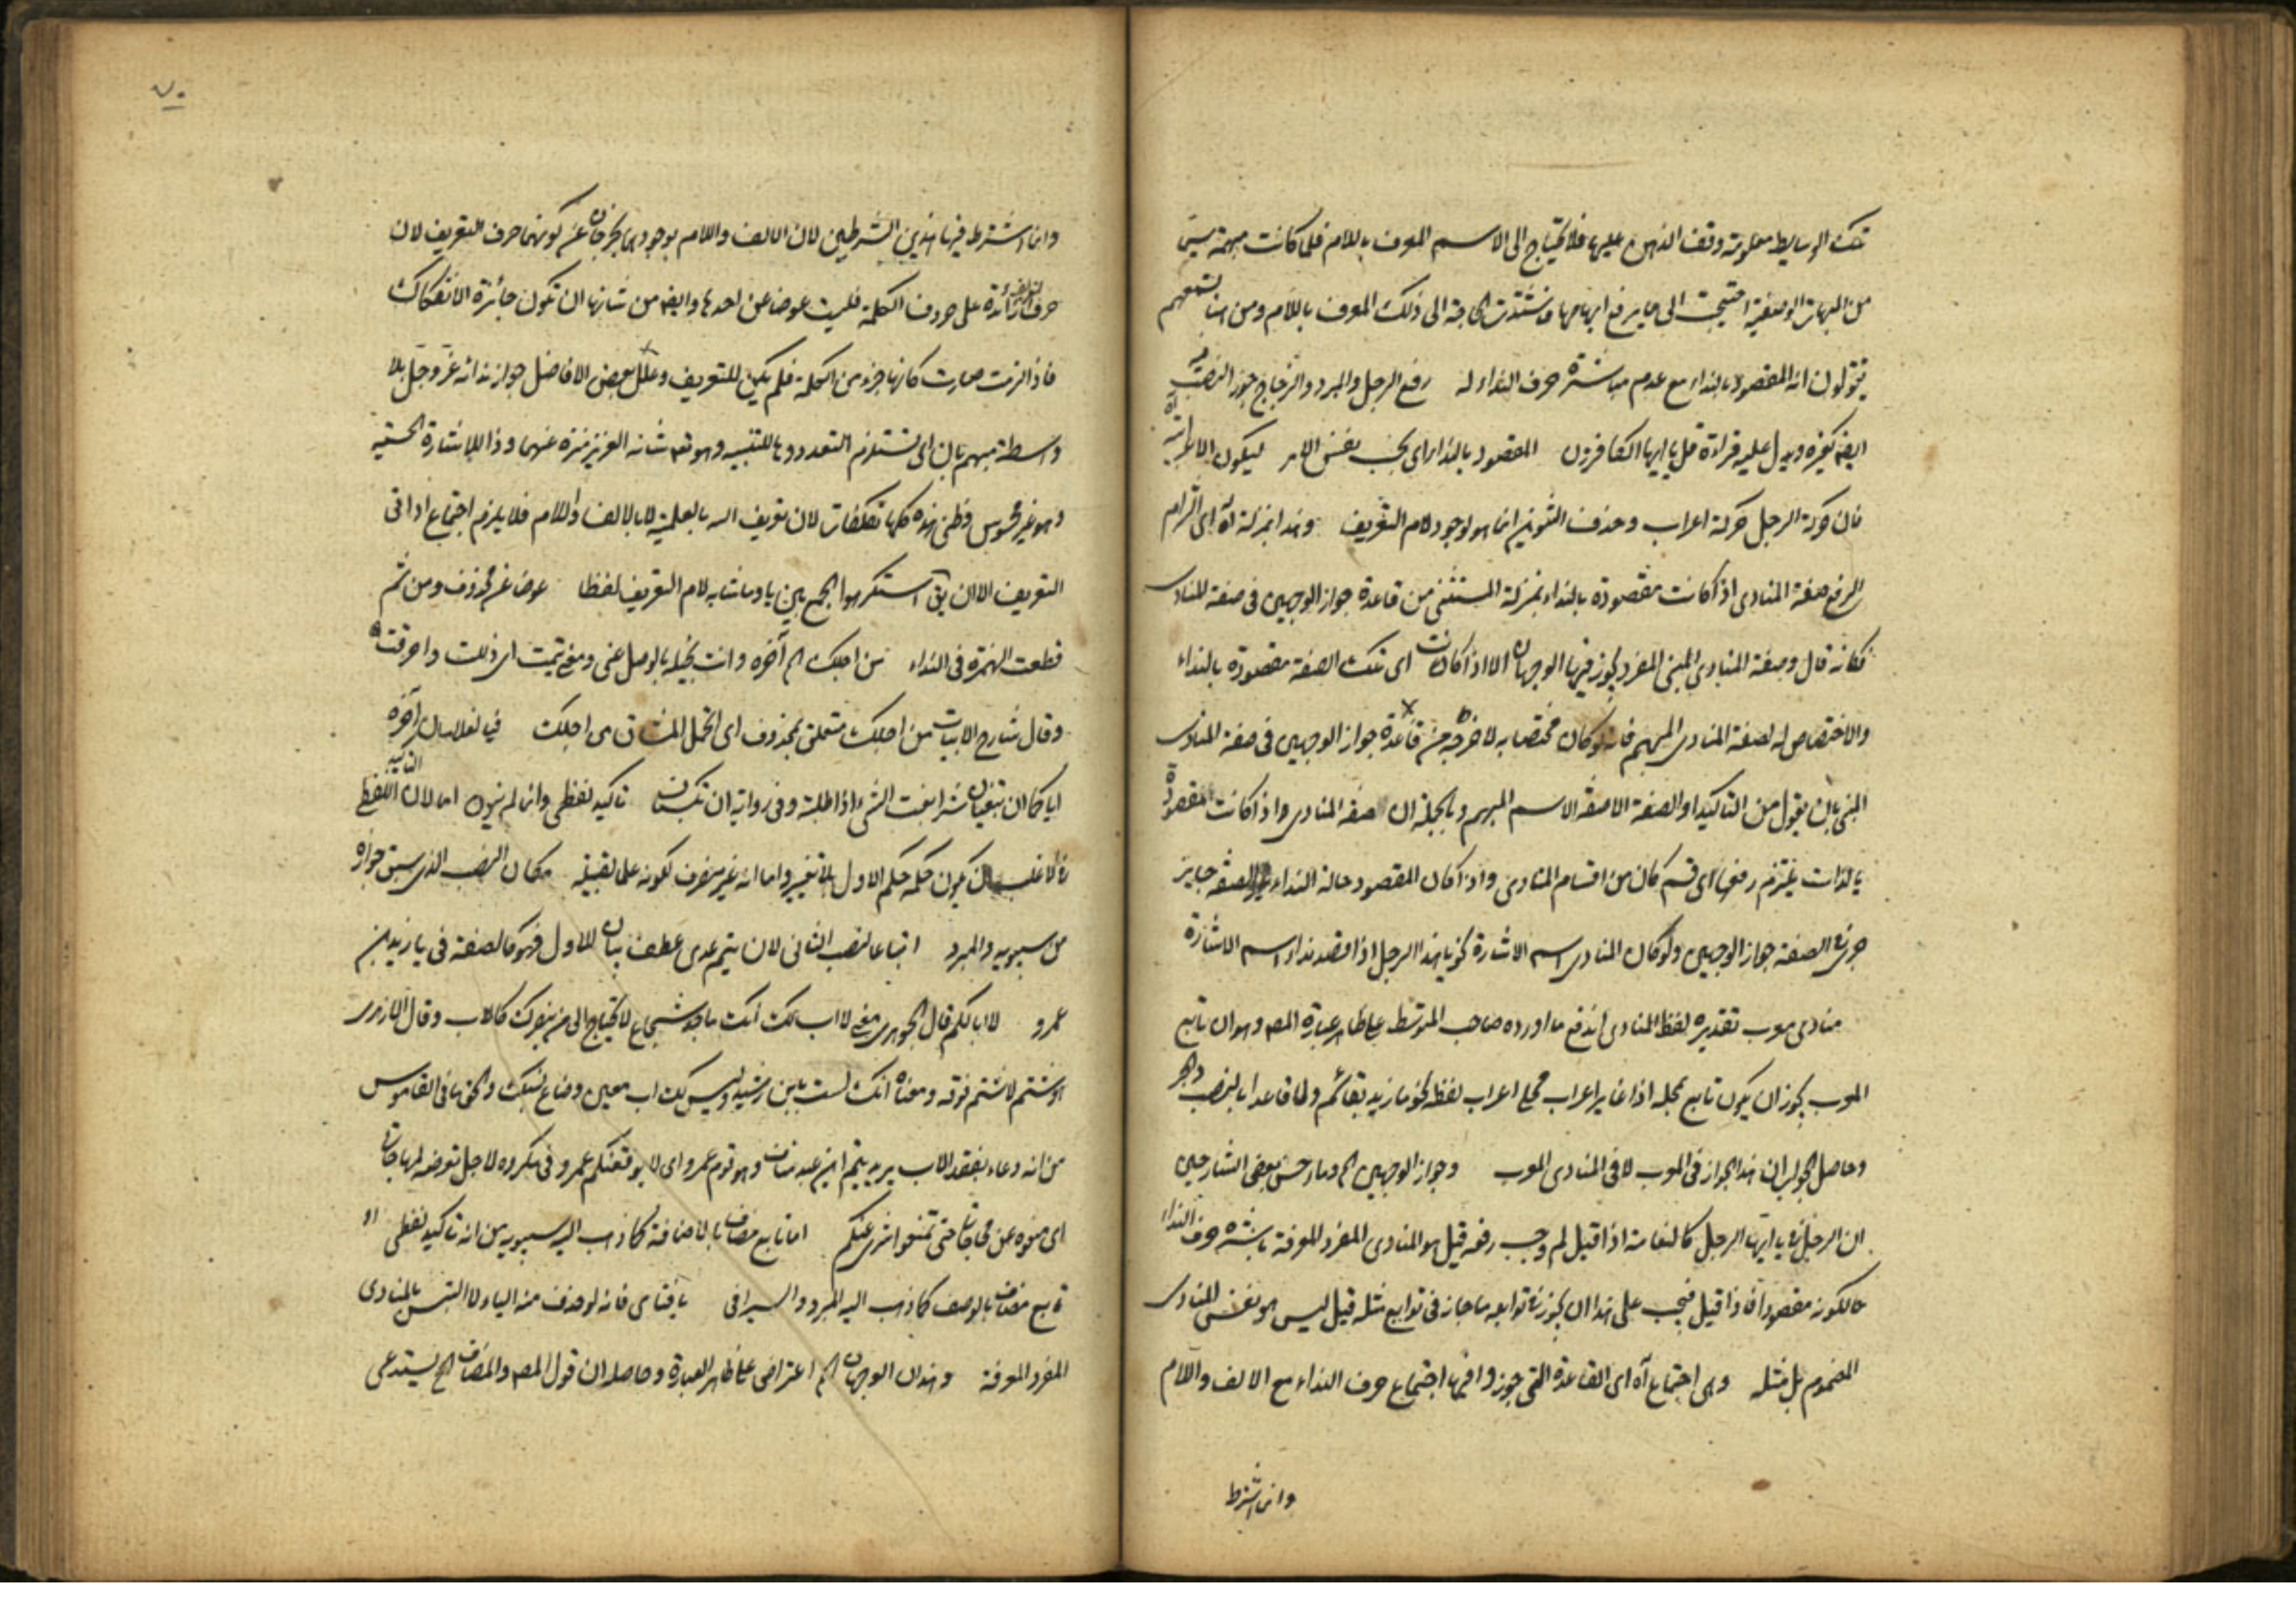 تلك الوسايط معلومة وقف الذهن عليها فلا يحتاج الى الاسم المعرف باللام فلما كانت مبهمة سيق
من المبهمات الوصفية احتيجت الى ما يرفع ابهامها فاشتدت الحاجة الى ذلك المعرف باللام ومن هنا تسمعهم
يقولون انه المقصود بالنداء مع عدم مباشرة حرف النداء له رفع الرجل والمبرد والزجاج جوز النصب فيه
ايضا كغيره ويدل عليه قراءة قل يا ايها الكافرون المقصود بالنداء اى بحسب نفس الامر ليكون الاعرابية آه
فان حركة الرجل حركة اعراب وحذف التنوين انما هو لوجود لام التعريف وهذا بمنزلة آه اى التزام
الرفع صفة المنادى اذا كانت مقصودة بالنداء بمنزلة المستثنى من قاعدة جواز الوجهين فى صفة المنادى
فكانه قال وصفة المنادى المبنى المفرد يجوز فيها الوجهان الا اذا كانت اى تلك الصفة مقصودة بالنداء
والاختصاص له لصفة المنادى المبهم فانه لو كان مختصا به لاخرجه من قاعدة جواز الوجهين فى صفة المنادى
المبنى بان يقول من التاكيد والصفة الا صفة الاسم المبهم وبالجملة ان صفة المنادى اذا كانت مقصودة
بالذات يلتزم رفعها اى قسم كان من اقسام المنادى واذا كان المقصود حالة النداء غير الصفة جايز
جرى فى الصفة جواز الوجهين ولو كان المنادى اسم الاشارة نحو يا هذا الرجل اذا قصد نداء اسم الاشارة
منادى معرب تقديره لفظ المنادى اندفع ما اورده صاحب المتوسط على ظاهر عبارة المص وهو ان تابع
المعرب يجوز ان يكون تابع لمحله اذا غاير اعراب محله اعراب لفظه نحو ما زيد بقائم ولا قاعدا بالنصب والجر
وحاصل الجواب ان هذا الجواز فى المعرب لا فى المنادى المعرب وجواز الوجهين الخ وما حسن بعض الشارحين
ان الرجل فى يا ايها الرجل كالنعامة اذا قيل لم وجب رفعه قيل هو المنادى المفرد المعرفة باشره حرف النداء
حالكونه مقصودا فاذا قيل فيجب على هذا ان يجوز فى توابعه ما جاز فى توابع مثله قيل ليس هو بنفس المنادى
المضموم بل مثله وهى اجتماع آه اى القاعدة التى جوزوا فيها اجتماع حرف النداء مع الالف واللام
وانما اشترط
٧٠
وانما اشترط فيها هذين الشرطين لان الالف واللام بوجودهما يخرجان عن كونهما حرف التعريف لان
حرف التعريف زائدة على حروف الكلمة فليست عوضا عن احدها وايضا من شانها ان تكون جائزة الانفكاك
فاذا لزمت صارت كانها جزء من الكلمة فلم يكن للتعريف وعلل بعض الافاضل جواز ندائه عز وجل بلا
واسطة مبهم بان اى تستلزم التعدد وها للتنبيه وهو تعه شانه العزيز منزه عنهما وذا للاشارة الحسية
وهو غير محسوس وظنى هذه كلها تكلفات لان تعريف الله بالعلمية لا بالالف واللام فلا يلزم اجتماع اداتى
التعريف الا ان يق استكرهوا الجمع بين يا وما شابه لام التعريف لفظا عوضا عن محذوف ومن ثم
قطعت الهمزة فى النداء من اجلك الخ آخره وانت بخيلة بالوصل عنى ومعنى تيمت اى ذللت واحرقت
وقال شارح الابيات من اجلك متعلق بمحذوف اى اتحمل المشاق من اجلك فيا لغلامان آخره
اياكما ان تبغيان شرا بغت الشىء اذا طلبته وفى رواية ان تكسبان تاكيد لفظى وانما لم ينون اما لان التاكيد اللفظى
فى الاغلب ان يكون حكمه حكم الاول بلا تغيير واما انه غير منصرف لكونه علما لقبيلة مكان النصب الذى سبق جوازه
من سيبويه والمبرد اتباعا لنصب الثانى لان تيم عدى عطف بيان للاول فهو كالصفة فى يا زيد بن
عمرو لا ابا لكم قال الجوهرى معنى لا اب لك انت ماجد شجاع لا تحتاج الى من ينصرك كالاب وقال المازرى
هو شتم لا شتم فوقه ومعناه انك لست بابن رشيد وليس لك اب معين وضاع نسبك والحق ما فى القاموس
من انه دعاء بفقد الاب يريد بتيم ابن عبد مناف وهو قوم عمرو اى لا يوقعنكم عمرو فى مكروه لاجل تعرضه لمهاجاتى
اى امنعوه عن مهاجاتى حتى تمنعوا شرى عنكم اما تابع مضاف بالاضافة كما ذهب اليه سيبويه من انه تاكيد لفظى او
تابع مضاف بالوصف كما ذهب اليه المبرد والسيرافى يا فتاى فانه لو حذف منه الياء لا التبس بالمنادى
المفرد المعرفة وهذان الوجهان الخ اعتراض على ظاهر العبارة وحاصله ان قول المص والمضاف الخ يستدعى